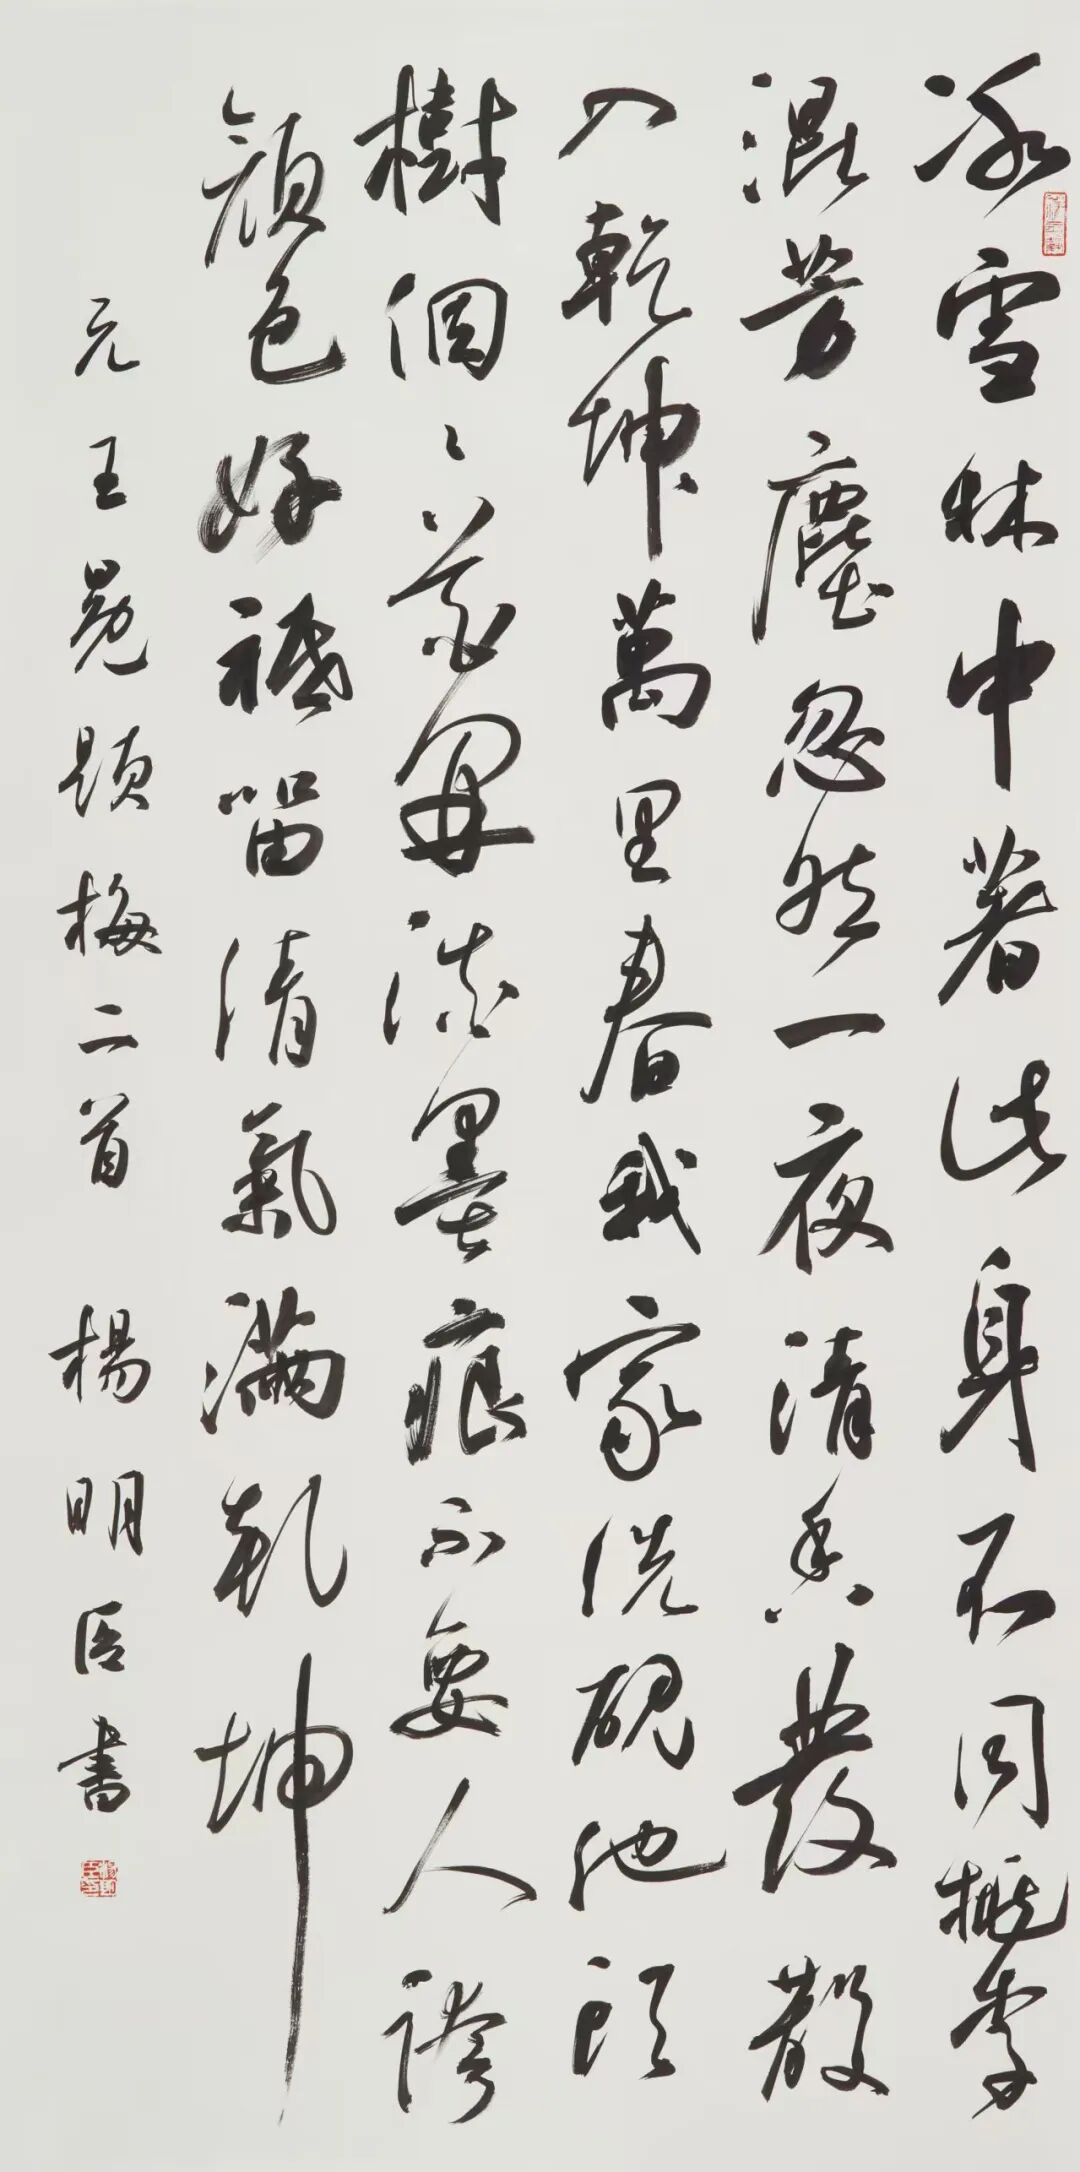 冰雪林中著此身不同桃李
混芳塵忽然一夜清香發散
入乾坤萬里春我家洗硯池頭
樹個々花開淡墨痕不要人誇
顏色好祗留清氣滿乾坤
元王冕題梅二首 楊明臣書